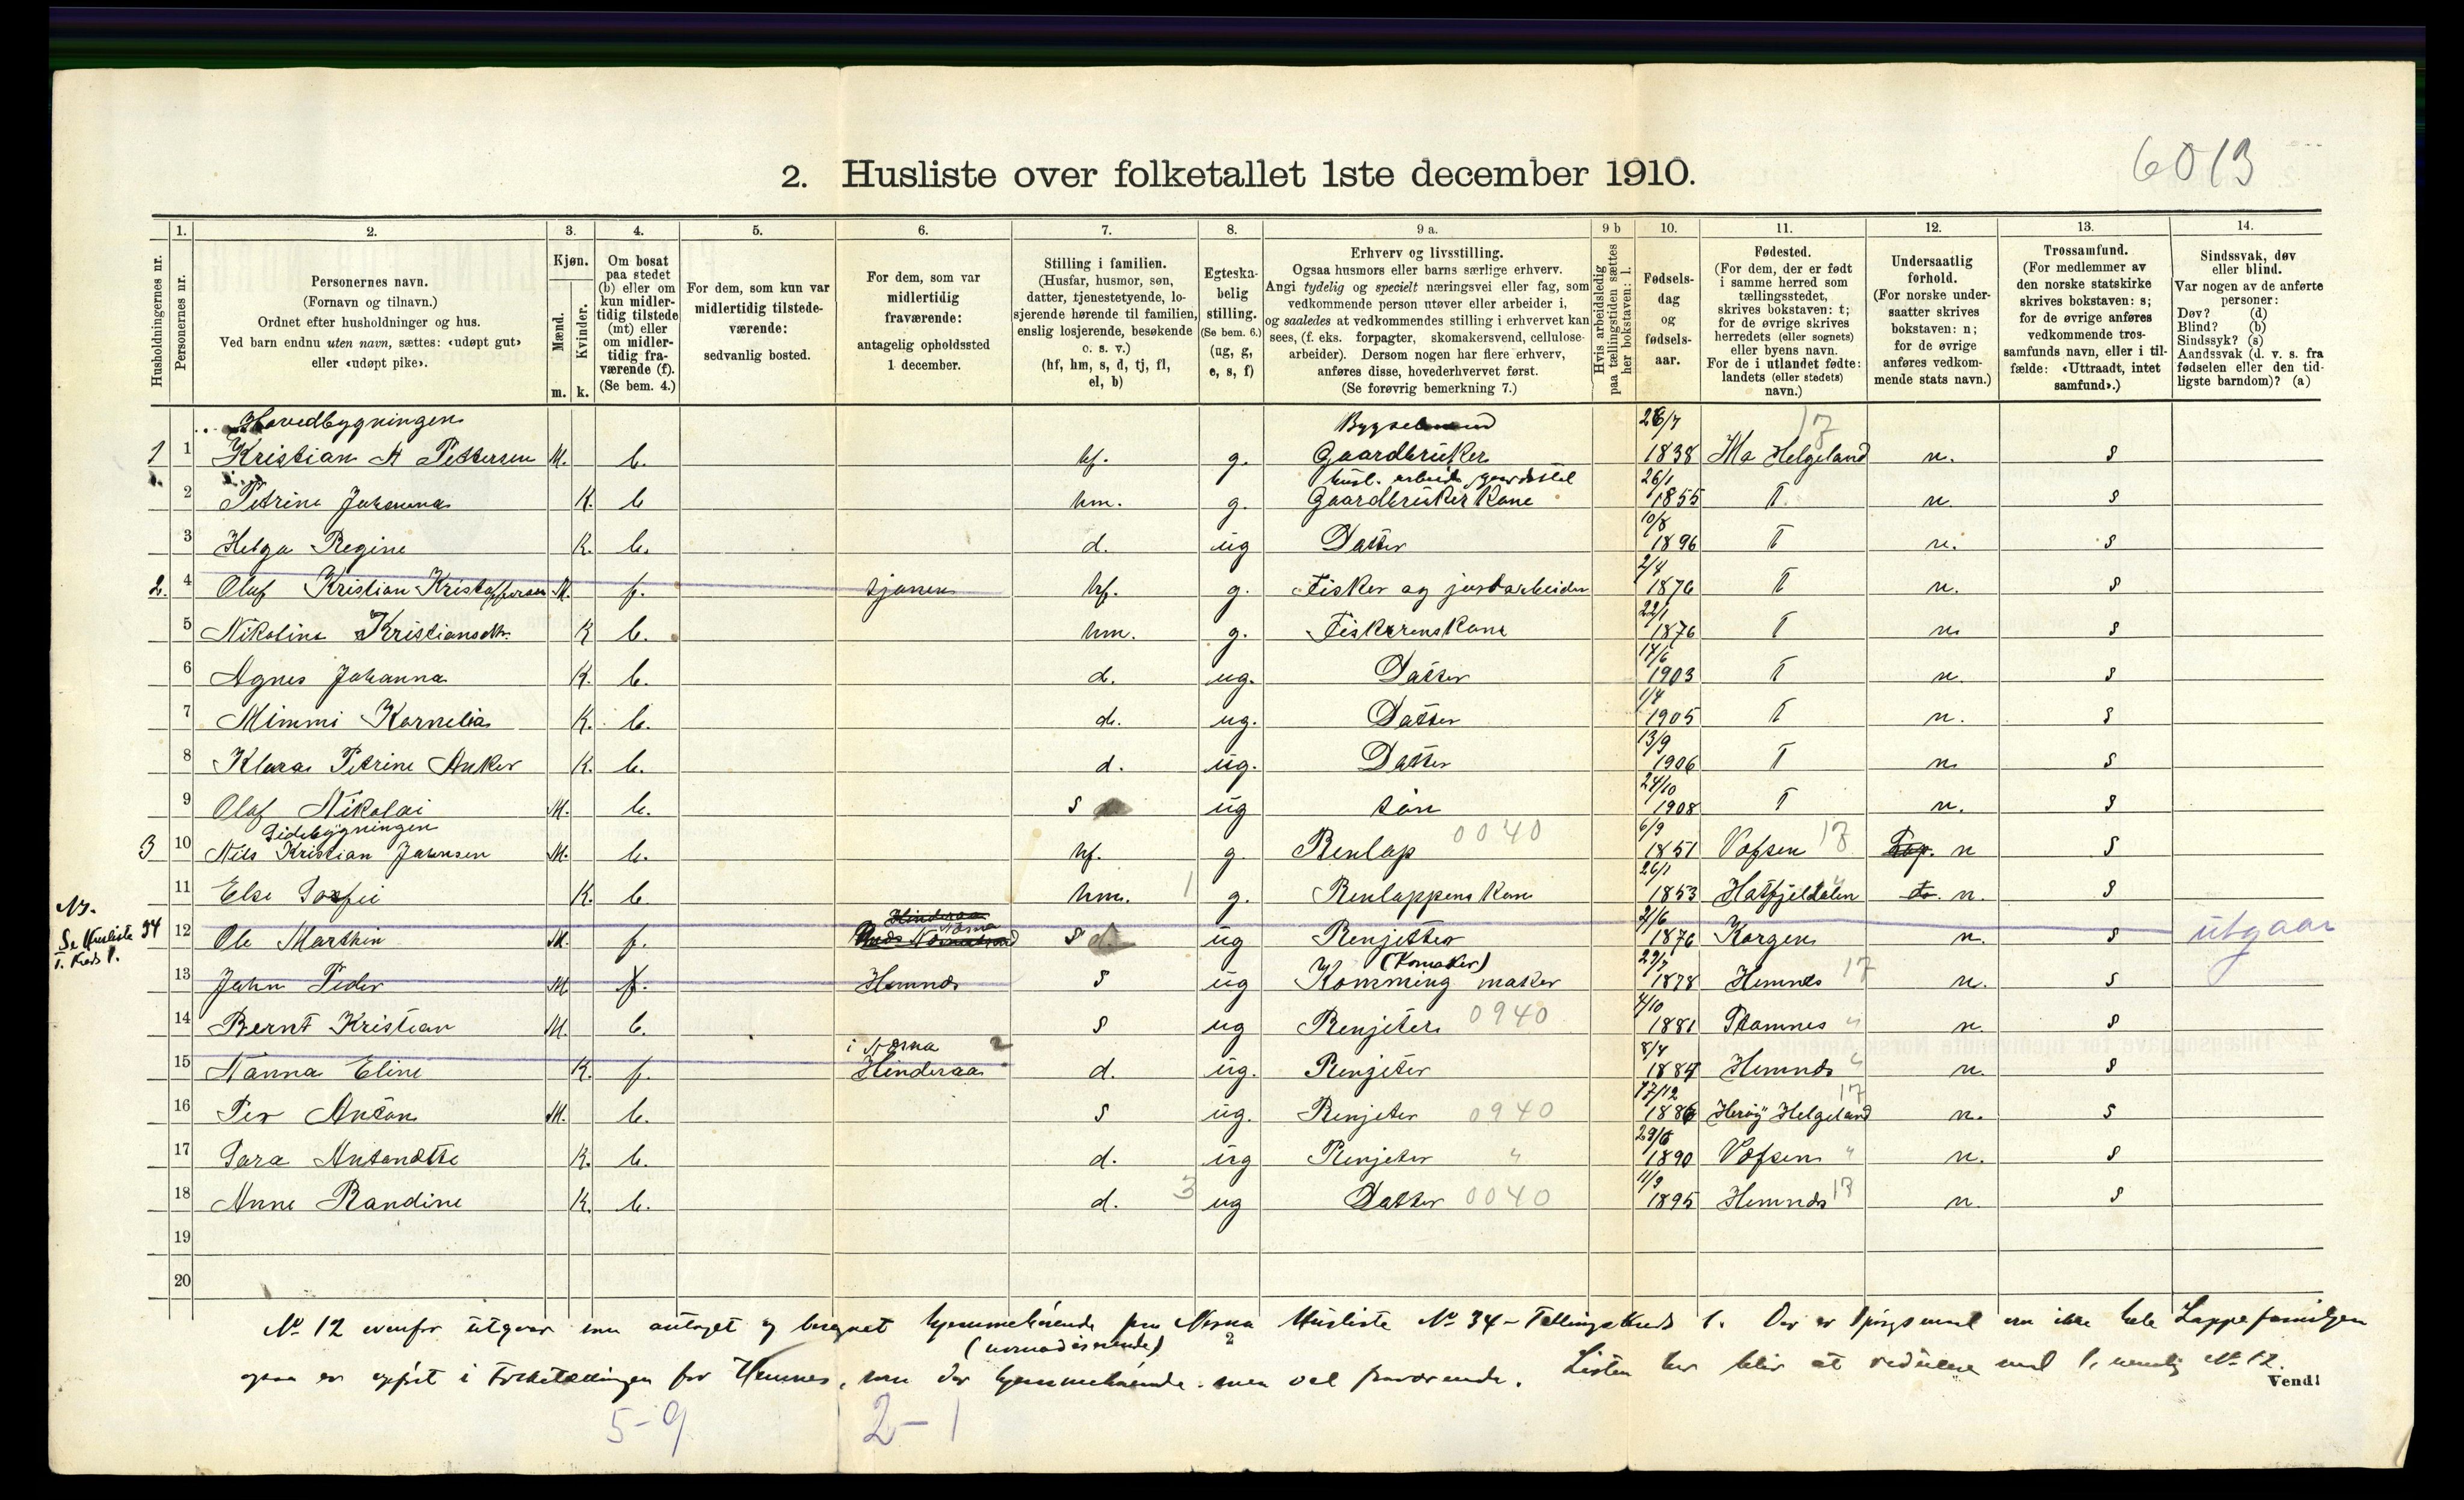 6013
2. Husliste over folketallet 1ste december 1910.
1. 2. 3. 4. 5. 6. 7. 8. 9 a. 9 b 10. 11. 12. 13. 14.
Husholdningernes nr.
Personernes nr.
Personernes navn.
(Fornavn og tilnavn.)
Ordnet efter husholdninger og hus.
Ved barn endnu uten navn, sættes: «udøpt gut»
eller «udøpt pike».
Kjøn.
Mænd.
Kvinder.
m. k.
Om bosat
paa stedet
(b) eller om
kun midler-
tidig tilstede
(mt) eller
om midler-
tidig fra-
værende (f).
(Se bem. 4.)
For dem, som kun var
midlertidig tilstede-
værende:
sedvanlig bosted.
For dem, som var
midlertidig
fraværende:
antagelig opholdssted
1 december.
Stilling i familien.
(Husfar, husmor, søn,
datter, tjenestetyende, lo-
sjerende hørende til familien,
enslig losjerende, besøkende
o. s. v.)
(hf, hm, s, d, tj, fl,
el, b)
Egteska-
belig
stilling.
(Se bem. 6.)
(ug, g,
e, s, f)
Erhverv og livsstilling.
Ogsaa husmors eller barns særlige erhverv.
Angi tydelig og specielt næringsvei eller fag, som
vedkommende person utøver eller arbeider i,
og saaledes at vedkommendes stilling i erhvervet kan
sees, (f. eks. forpagter, skomakersvend, cellulose-
arbeider). Dersom nogen har flere erhverv,
anføres disse, hovederhvervet først.
(Se forøvrig bemerkning 7.)
Hvis arbeidsledig
paa tællingstiden sættes
her bokstaven: l.
Fødsels-
dag
og
fødsels-
aar.
Fødested.
(For dem, der er født
i samme herred som
tællingsstedet,
skrives bokstaven: t;
for de øvrige skrives
herredets (eller sognets)
eller byens navn.
For de i utlandet fødte:
landets (eller stedets)
navn.)
Undersaatlig
forhold.
(For norske under-
saatter skrives
bokstaven: n;
for de øvrige
anføres vedkom-
mende stats navn.)
Trossamfund.
(For medlemmer av
den norske statskirke
skrives bokstaven: s;
for de øvrige anføres
vedkommende tros-
samfunds navn, eller i til-
fælde: «Uttraadt, intet
samfund».)
Sindssvak, døv
eller blind.
Var nogen av de anførte
personer:
Døv? (d)
Blind? (b)
Sindssyk? (s)
Aandssvak (d. v. s. fra
fødselen eller den tid-
ligste barndom)? (a)
Hovedbygningen 26/7 17
1 1 Kristian A Pettersen M. b. hf. g. Gaardbruker 1838 Helgeland n. s
26/1
2 Petrine Johanna K. b hm. g. Gaardbruker Kone 1855 T. n. s
10/8
3 Helga Regine K. b. d. ug Datter 1896 T n. s
2/4
2. 4 Olaf Kristian Kristoffersen M. f. hf. g. Fisker og jordarbeider 1876 T n. s
22/1
5 Nikoline Kristiansdtr. K b. hm. g. Fiskerens Kone 1876 T n. s
6 Agnes Johanna K. b. d. ug. Datter 1903 T n. s
1/4
7 Mimmi Kornelia K. b. d. ug. Datter 1905 T n. s
13/9
8 Klara Petrine Anker K. b. d. ug. Datter 1906 T n. s
24/10
9 Olaf Nikolai M. b. s ug søn 1908 T n. s
Sidebygningen 6/9
3 10 Nils Kristian Johnsen M. b. hf. g. Renlap 0040 1851 Vefsen 17 Lap. n s
26/1
11 Else Sofie K. b hm. 1 g. Renlappens Kone 1853 Hatfjeldalen do. n. s
Hinderaa Nesna
Se Husliste 34
T. Kreds 1.
12 Ole Marthin M. f. s ug Renjetter 1876 Korgen n. s utgaar
(Komaker)
13 John Peder M f. Hemnes s ug Komming maker 1878 Hemnes 17 n. s
4/10
14 Bernt Kristian M. b. s ug Renjeter 0940 1881 n. s
i Nesna 2 8/4
15 Nanna Eline K. f. Hinderaa d. ug. Renjeter 1884 Hemnes " n. s
17/12 17
16 Per Anton M. b. s ug. Renjeter 0940 1886 Herøy Helgeland n. s
17 Sara Antonette K. b. d. ug Renjeter " 1890 Vefsen " n. s
11/9
18 Anne Randine K. b. d. 3 ug Datter 0040 1895 Hemnes 17 n. s
19
20
No 12 ovenfor utgaar som antaget og beregnet hjemmehörende paa Nesna Husliste No 34 - Tellingskreds 1. Der er spörgsmaal om ikke hele Lappefamiljen
(nomadiserende) 2
ogsaa er opfört i Folketællingen for Hemnes, som der hjemmehörende men vel fraværende. Listen her blir at redusere med 1, nemlig No 12.
Vend!
5-9 2-1